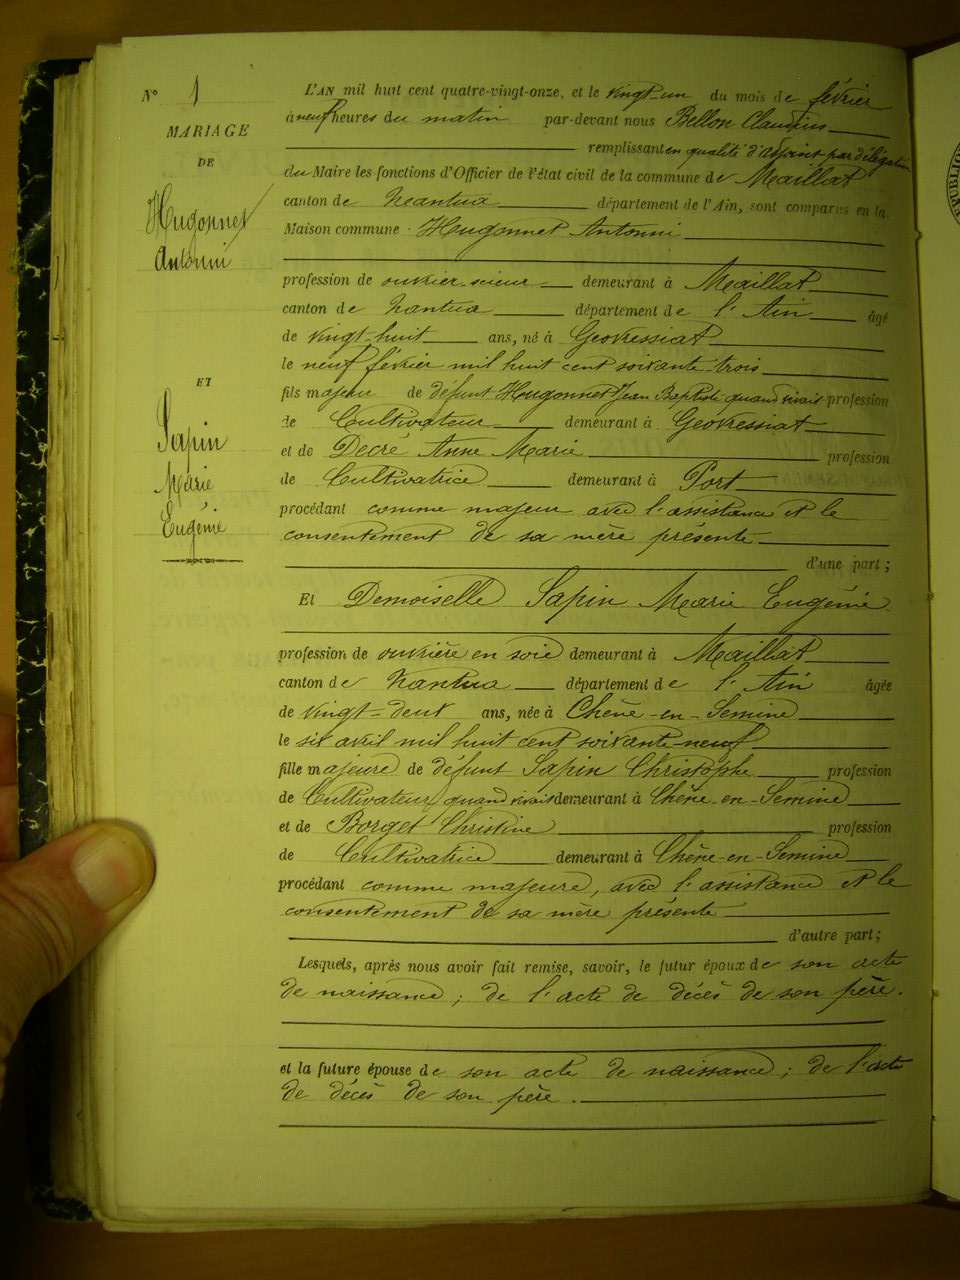 N° 1
MARIAGE
DE
Hugonnet
Antonni
ET
Sapin
Marie
Eugénie
L'AN mil huit cent quatre-vingt-onze, et le vingt-un du mois de février
à neuf heures du matin par-devant nous Bellon Claudius
remplissant en qualité d'adjoint par délégation
du Maire les fonctions d'Officier de l'état civil de la commune de Maillat
canton de Nantua département de l'Ain, sont comparus en la
Maison commune. Hugonnet Antonni
profession de ouvrier-scieur demeurant à Maillat
canton de Nantua département de l'Ain âgé
de vingt-huit ans, né à Géovressiat
le neuf février mil huit cent soixante-trois
fils majeur de défunt Hugonnet Jean Baptiste quand vivait profession
de Cultivateur demeurant à Géovressiat
et de Decré Anne Marie profession
de Cultivatrice demeurant à Port
procédant comme majeur avec l'assistance et le
consentement de sa mère présente
d'une part;
Et Demoiselle Sapin Marie Eugénie
profession de ouvrière en soie demeurant à Maillat
canton de Nantua département de l'Ain âgée
de vingt-deux ans, née à Chêne-en-Semine
le six avril mil huit cent soixante-neuf
fille majeure de défunt Sapin Christophe profession
de Cultivateur quand vivait demeurant à Chêne-en-Semine
et de Borget Christine profession
de Cultivatrice demeurant à Chêne-en-Semine
procédant comme majeure, avec l'assistance et le
consentement de sa mère présente
d'autre part;
Lesquels, après nous avoir fait remise, savoir, le futur époux de son acte
de naissance; de l'acte de décès de son père.
et la future épouse de son acte de naissance; de l'acte
de décès de son père.